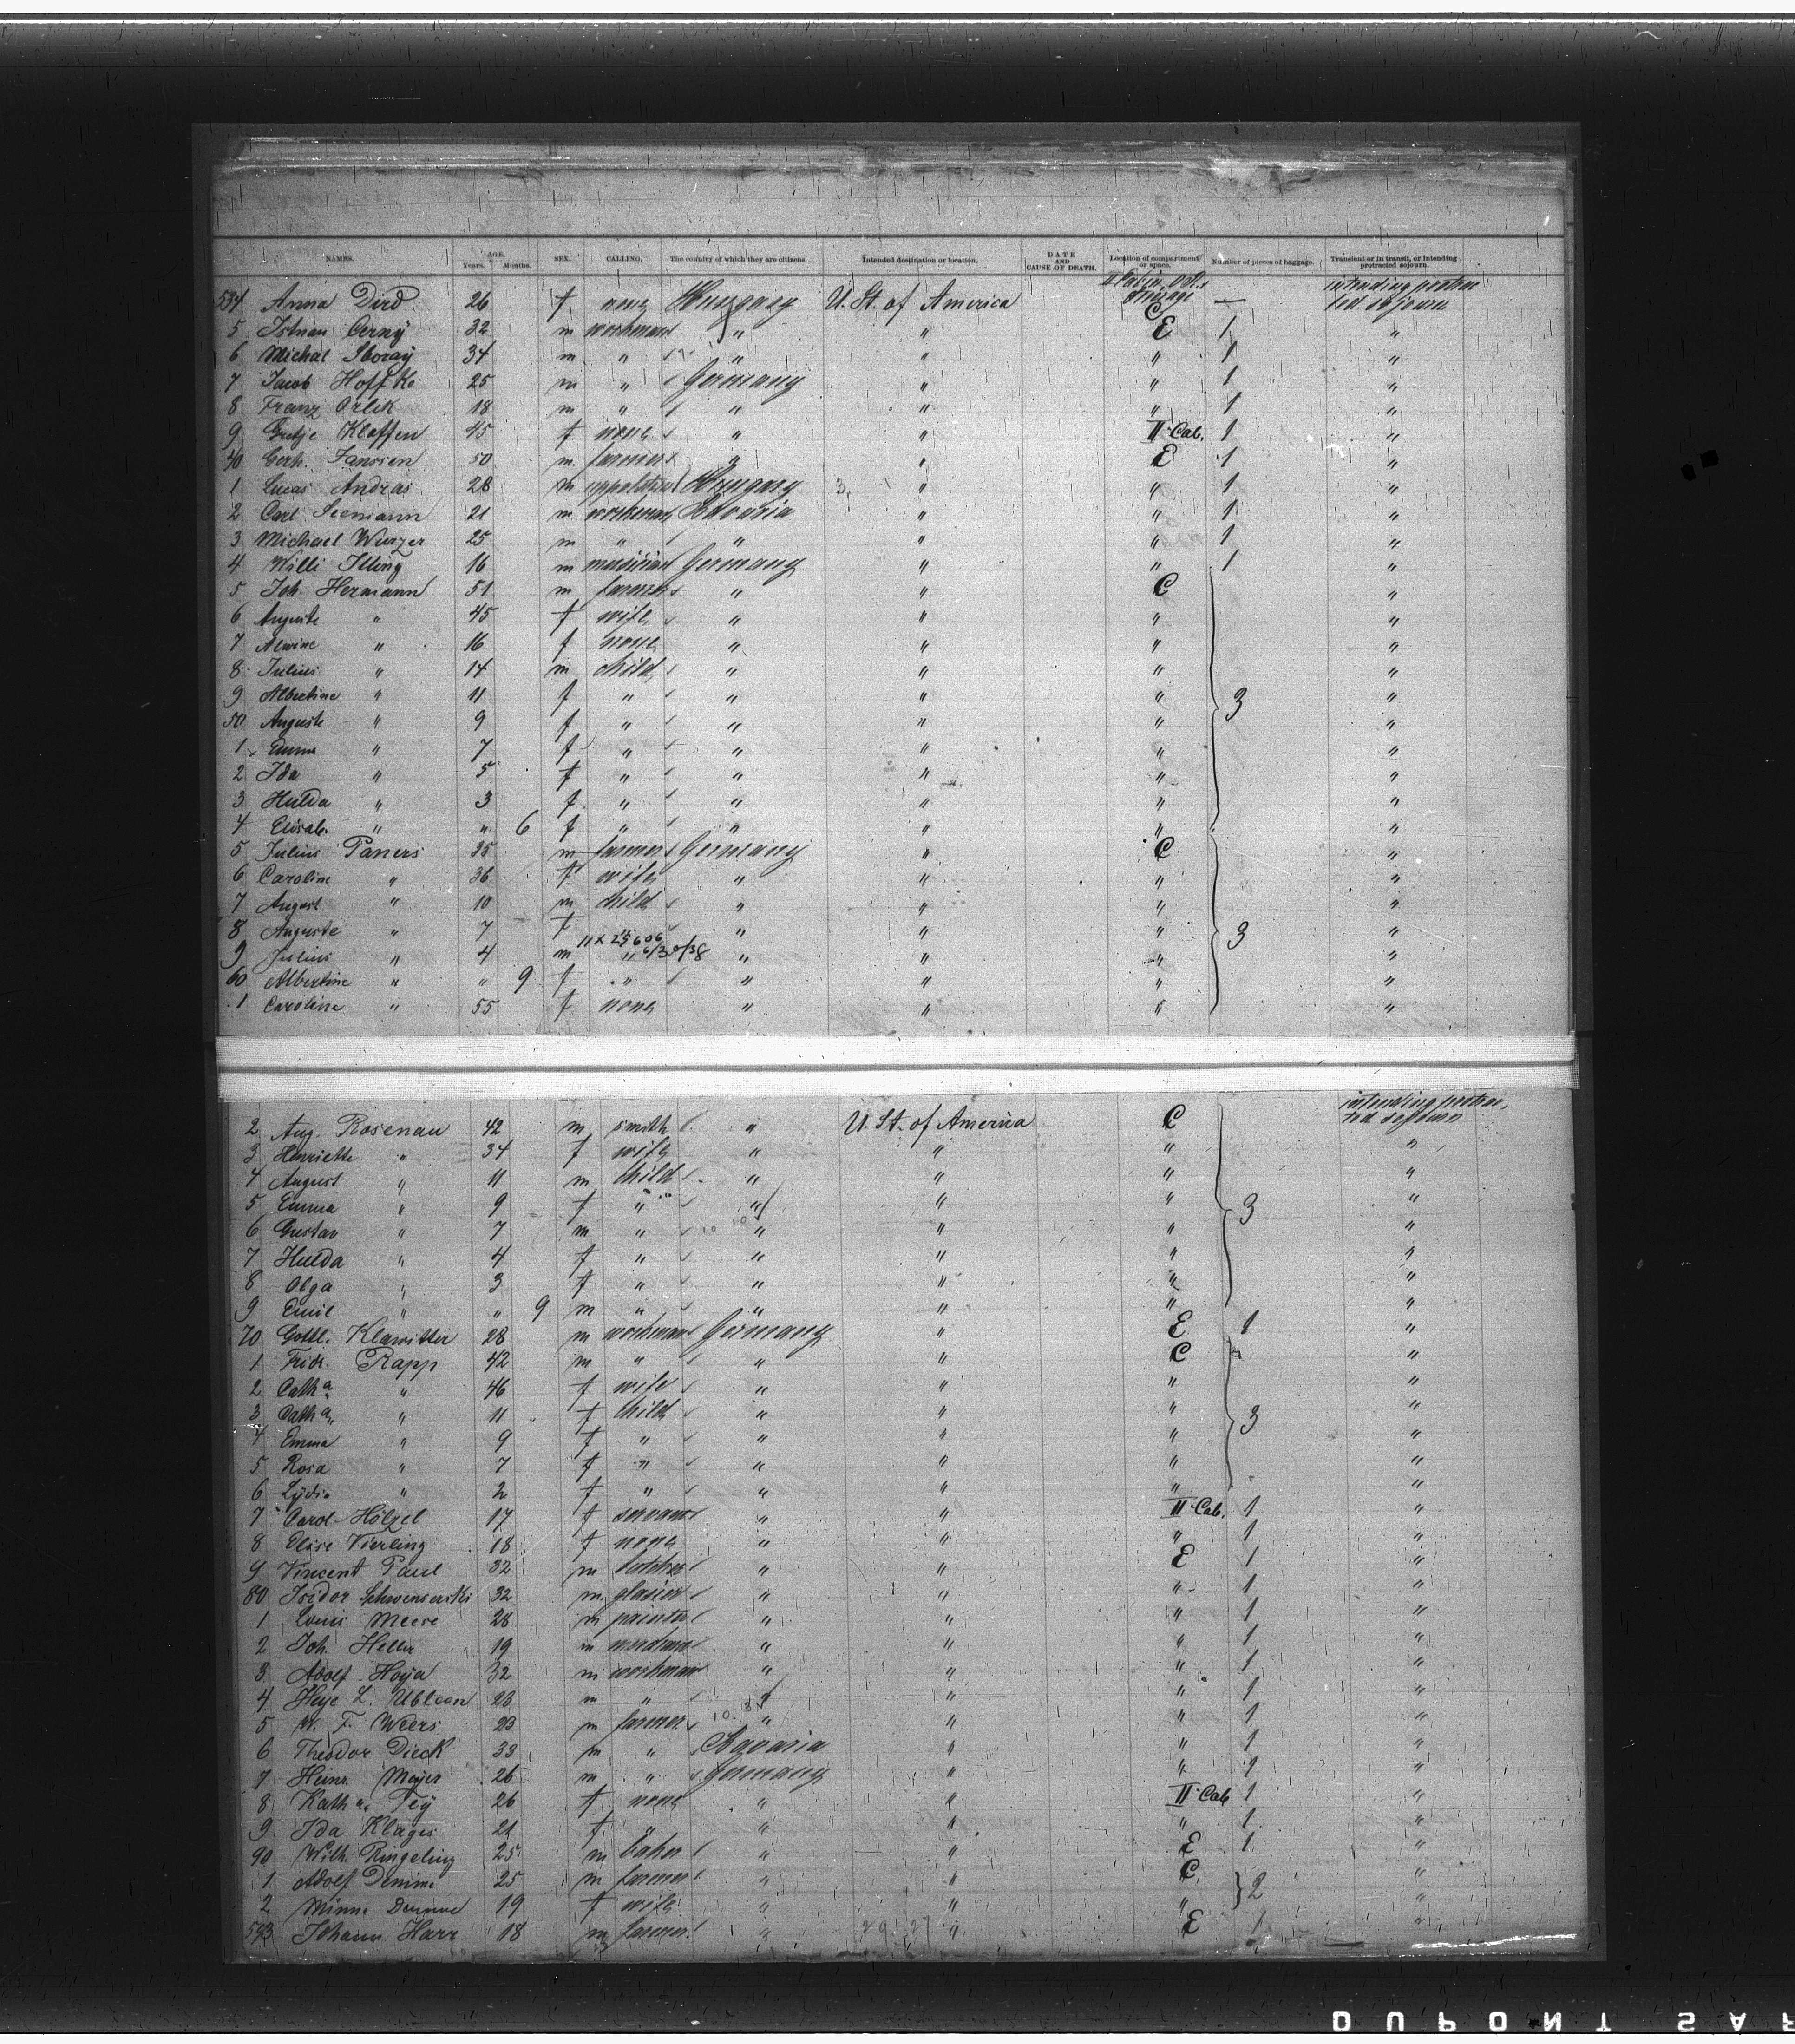 NAMES. AGE. Years. Months. SEX. CALLING. The country of which they are citizens. Intended destination or location. DATE AND CAUSE OF DEATH. Location of compartment or space. Number of pieces of baggage. Transient or in transit, or intending protracted sojourn.
534 Anna Dird 26 f none Hungary U. St. of America C — intending protrac ted sojourn
5 Istvan Cerný 32 m workman " " E 1 "
6 Michal 34 m " " " " 1 "
7 Jacob Hoffke 25 m " Germany " " 1 "
8 Franz Orlik 18 m " " " " 1 "
9 Gretje Klaffen 45 f none " " II Cab. 1 "
40 Gerh. Janssen 50 m farmer " " E 1 "
1 Lucas Andras 28 m Hungary " " 1 "
2 Carl Seemann 21 m workman Bavaria " " 1 "
3 Michael Wurzer 25 m " " " " 1 "
4 Willi Illing 16 m musician Germany " " 1 "
5 Joh. Hermann 51 m farmer " " C "
6 Auguste " 45 f wife " " " "
7 Alwine " 16 f none " " " "
8 Julius " 14 m child " " " "
9 Albertine " 11 f " " " " 3 "
50 Auguste " 9 f " " " " "
1 Emma " 7 f " " " " "
2 Ida " 5 f " " " " "
3 Hulda " 3 f " " " " "
4 Elisab. " " 6 f " " " " "
5 Julius Paners 35 m farmer Germany " C "
6 Caroline " 36 f wife " " " "
7 August " 10 m child " " " "
8 Auguste " 7 f " " " " 3 "
11 x 25606
9 Julius " 4 m " 6/30/38 " " " "
60 Albertine " " 9 f " " " " "
1 Caroline " 55 f none " " " "
2 Aug. Rosenau 42 m smith " U. St. of America C intending protrac, ted sojourn
3 Henriette " 34 f wife " " " "
4 August " 11 m child " " " "
5 Emma " 9 f " " " " 3 "
6 Gustav " 7 m " " " " "
7 Hulda " 4 f " " " " "
8 Olga " 3 f " " " " "
9 Emil " " 9 m " " " " "
70 Gottl. Klawitter 28 m workman Germany " E 1 "
1 Fridr. Rapp 42 m " " " C "
2 Catha " 46 f wife " " " "
3 Catha " 11 f child " " " 3 "
4 Emma " 9 f " " " " "
5 Rosa " 7 f " " " " "
6 Lydia " 2 f " " " " "
7 Carol. Hölzel 17 f servant " " II Cab. 1 "
8 Elise Vierling 18 f none " " " 1 "
9 Vincent Paul 32 m butcher " " E 1 "
80 Isidor 32 m glasier " " " 1 "
1 Louis Meese 28 m painter " " " 1 "
2 Joh. Heller 19 m " " " 1 "
3 Adolf Hoyer 32 m workman " " " 1 "
4 Heye L. 23 m " " " " 1 "
5 W. F. Weers 23 m farmer " " " 1 "
6 Theodor Dieck 33 m " Bavaria " " 1 "
7 Heinr. Meyer 26 m " Germany " " 1 "
8 Katha. Tey 26 f none " " II Cab 1 "
9 Ida Klages 21 f " " " " 1 "
90 Wilh. Ringeling 25 m baker " " E 1 "
1 Adolf Demme 25 m farmer " " C 2 "
2 Minna Demme 19 f wife " " " "
593 Johann Harr 18 m farmer " " E 1 "
DUPONT SAF